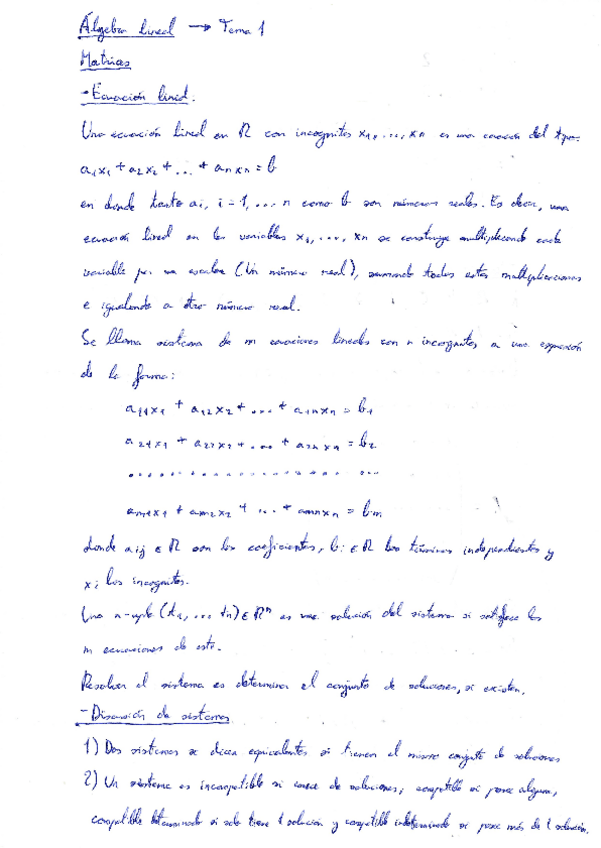 Álgebra lineal → Tema 1
Matrices
- Ecuación lineal.
Una ecuación lineal en R con incognitas x1, ..., xn es una ecuación del tipo:
a1x1 + a2x2 + ... + anxn = b
en donde tanto ai, i = 1, ... n como b son números reales. Es decir, una
ecuación lineal en las variables x1, ..., xn se construye multiplicando cada
variable por un escalar (Un número real), sumando todas estas multiplicaciones
e igualando a otro número real.
Se llama sistema de m ecuaciones lineales con n incognitas a una expresión
de la forma:
a11x1 + a12x2 + ... + a1nxn = b1
a21x1 + a22x2 + ... + a2nxn = b2
.......................... ...
am1x1 + am2x2 + ... + amnxn = bm
donde aij ∈ R son los coeficientes, bi ∈ R los términos independientes y
xi las incognitas.
Una n-upla (t1, ... tn) ∈ Rⁿ es una solución del sistema si satisface las
m ecuaciones de este.
Resolver el sistema es determinar el conjunto de soluciones, si existen.
- Discusión de sistemas
1) Dos sistemas se dicen equivalentes si tienen el mismo conjunto de soluciones
2) Un sistema es incompatible si carece de soluciones, compatible si posee alguna,
compatible determinado si solo tiene 1 solución y compatible indeterminado si posee más de 1 solución.